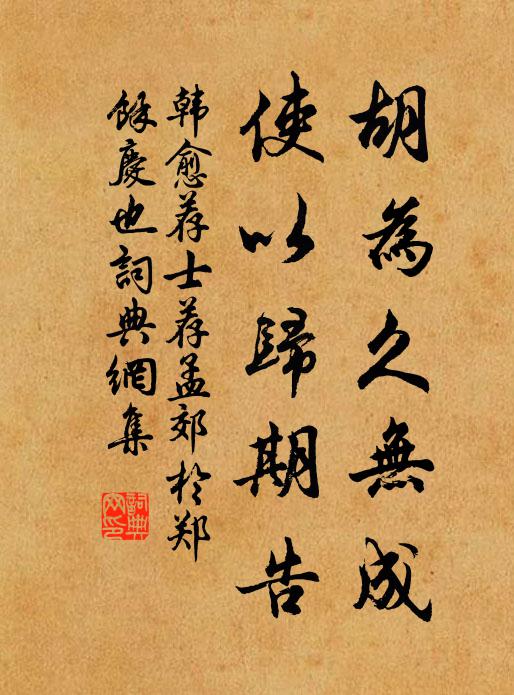 胡為久無成
使以歸期告
韩愈荐士荐孟郊於郑
餘慶也詞典網集
詞典網印